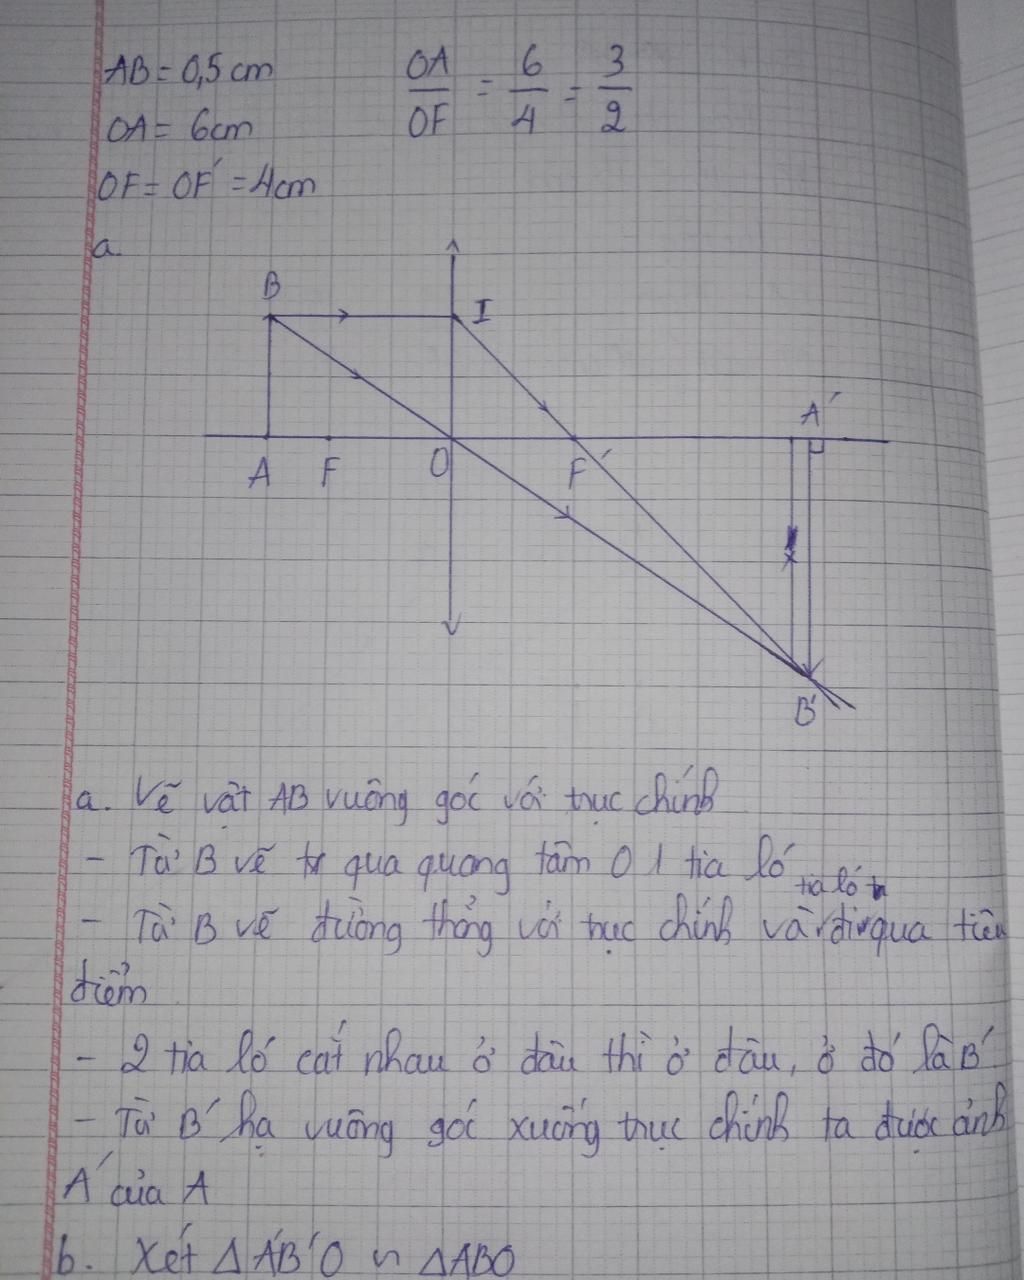 AB = 0,5 cm
OA/OF = 6/4 = 3/2
OA = 6cm
OF = OF' = 4cm
a.
B
I
A'
A F O F'
B'
a. Vẽ vật AB vuông góc với trục chính
- Từ B vẽ qua quang tâm O 1 tia ló
- Từ B vẽ đường thẳng với trục chính và tia ló đi qua tiêu
điểm
- 2 tia ló cắt nhau ở đâu thì ở đâu, ở đó là B'
- Từ B' hạ vuông góc xuống trục chính ta được ảnh
A' của A
b. Xét ΔA'B'O ∽ ΔABO